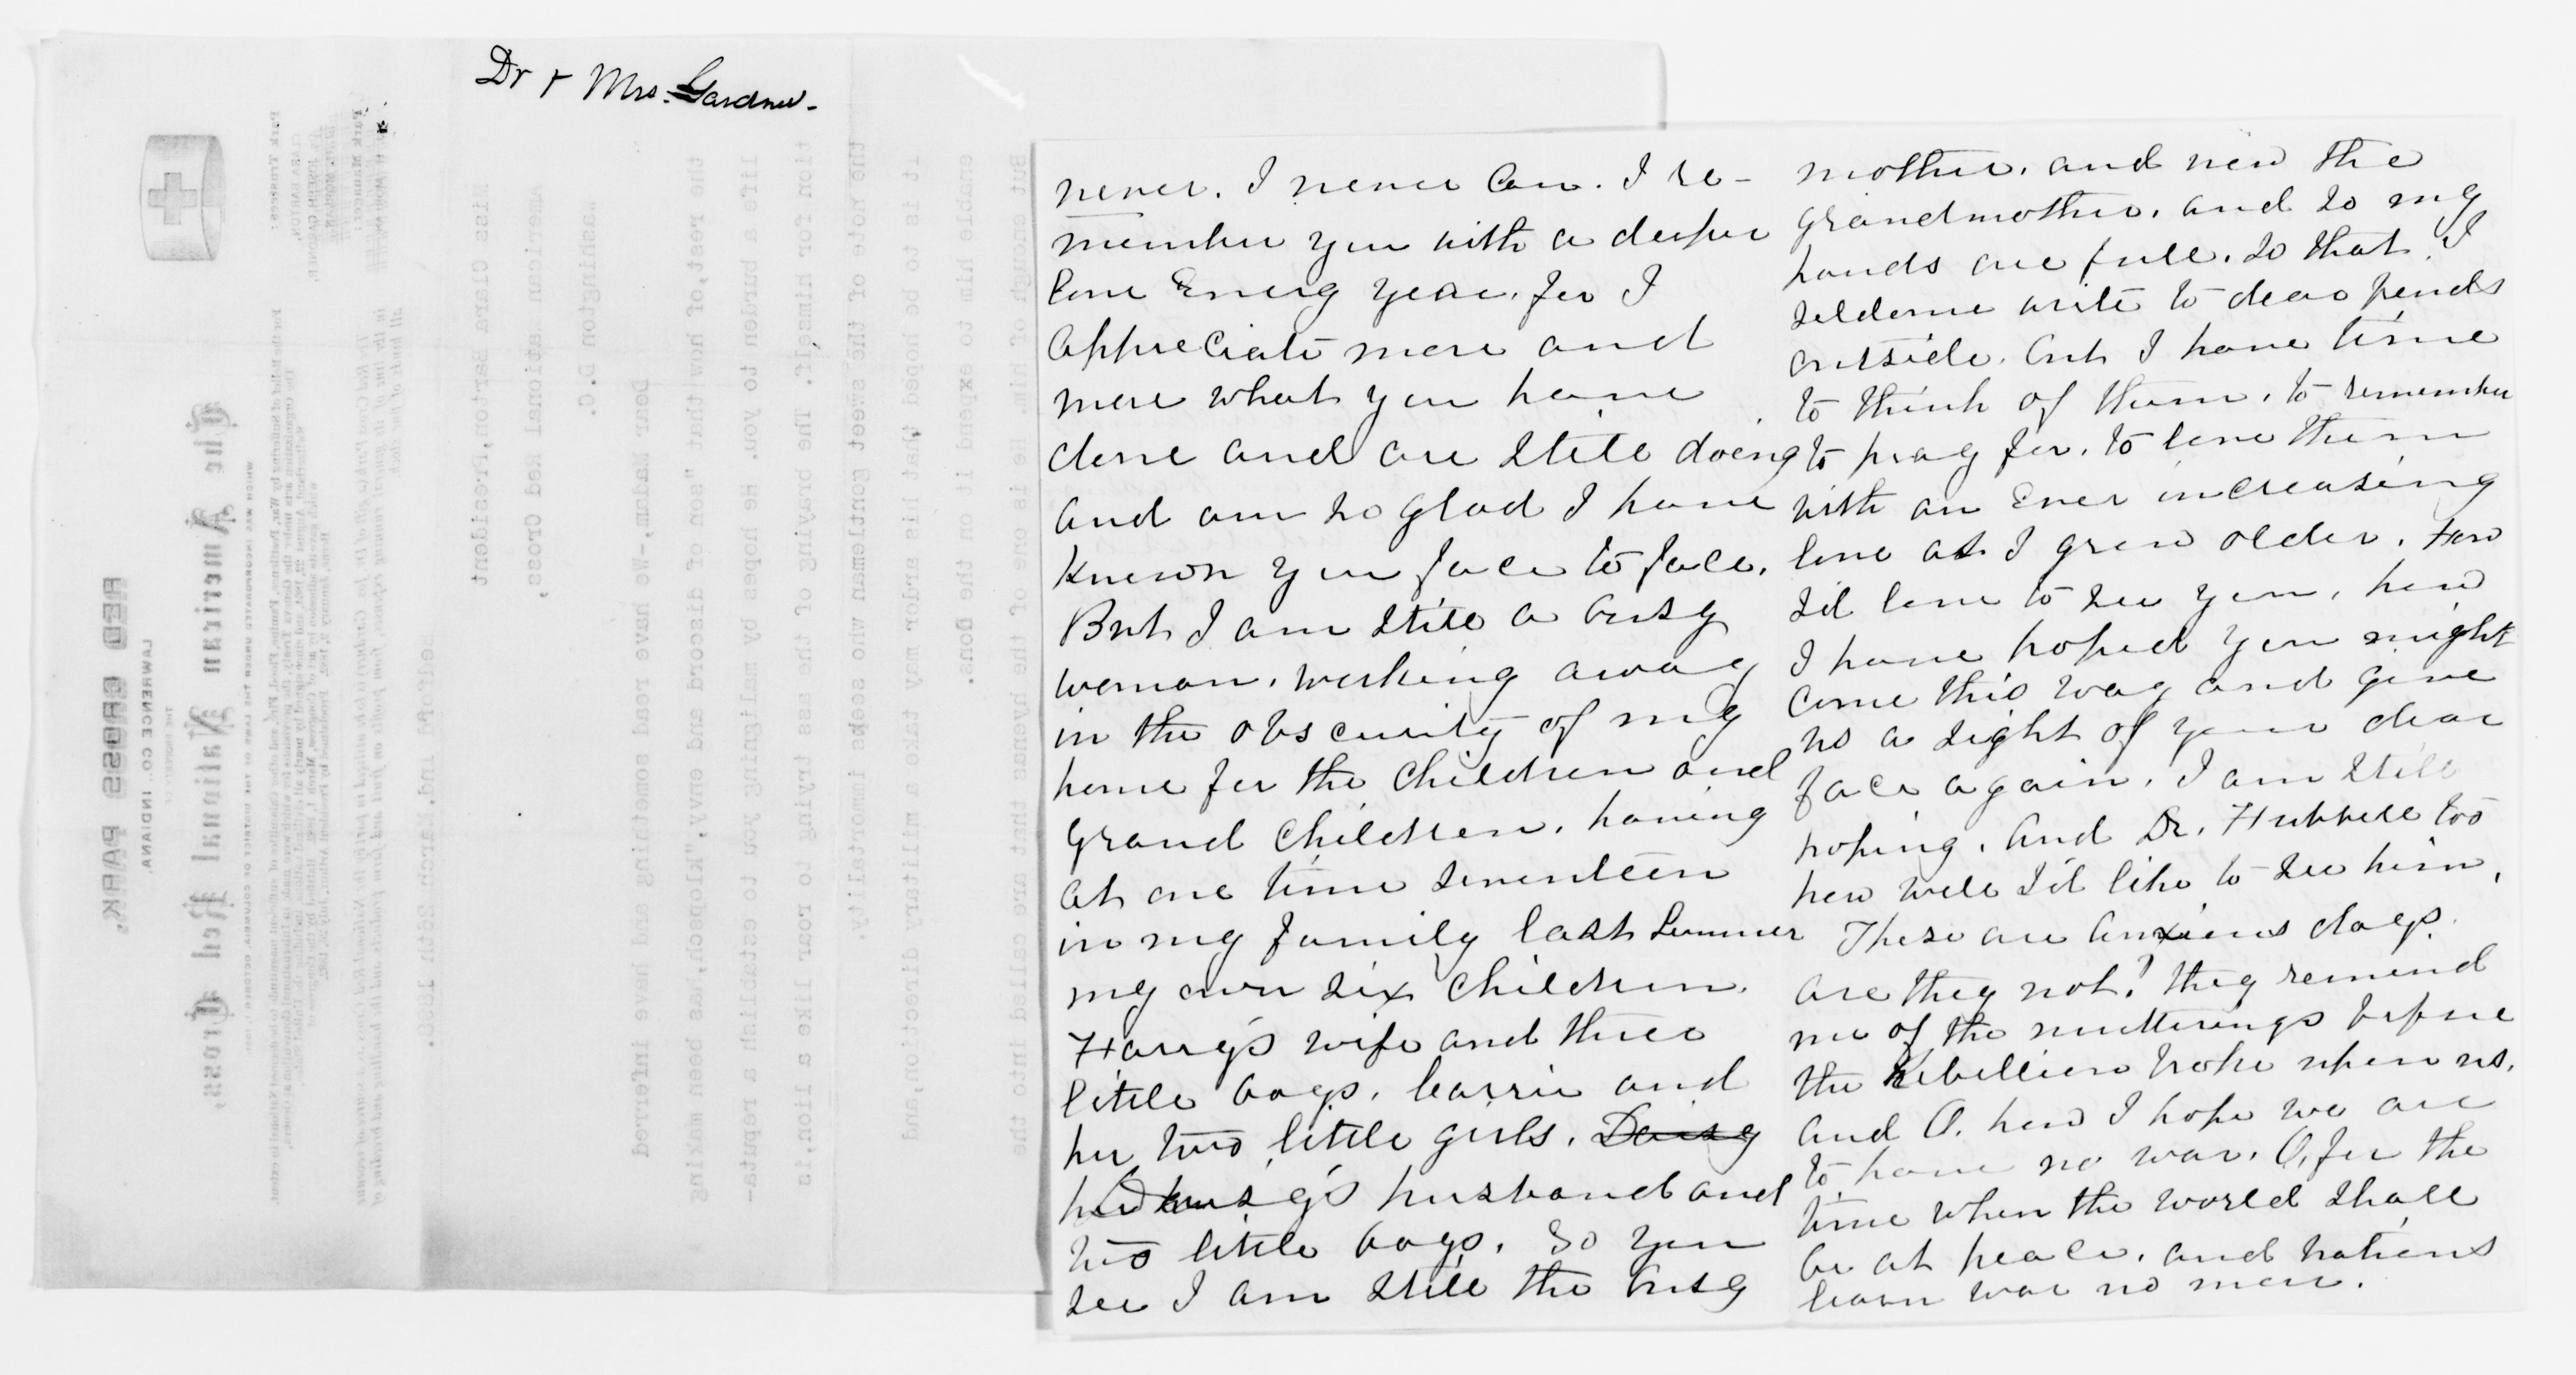 Dr & Mrs. Gardner.
never. I never can. I re-
member you with a deeper
love every year, for I
appreciate more and
more what you have
done and are still doing
and am so glad I have
known you face to face.
But I am still a busy
woman, working away
in the obscurity of my
home for the children and
grand children, having
at one time seventeen
in my family last summer
my own six children.
Harry's wife and three
little boys, Carrie and
her two little girls, Daisy
Daisy's husband and
two little boys. So you
see I am still the busy
mother, and now the
grandmother, and so my
hands are full, so that I
seldome write to dear friends
outside. But I have time
to think of them, to remember
to pray for, to love them
with an ever increasing
love as I grow older. How
I'd love to see you, how
I have hoped you might
come this way and give
us a sight of your dear
face again. I am still
hoping. And Dr. Hubbell too
how well I'd like to see him.
These are anxious days.
are they not? they remind
me of the mutterings before
the Rebellion broke upon us.
and O. how I hope we are
to have no war. O, for the
time when the world shall
be at peace, and nations
learn war no more.
The American National Red Cross,
LAWRENCE CO. INDIANA,
RED CROSS PARK,
Miss Clara Barton, President
American National Red Cross,
Washington D.C.
Dear Madam,-We have read something and have inferred
the rest, of how that "son of discord and envy," Klopsch, has been making
life a burden to you. He hopes by maligning you to establish a reputa-
tion for himself. The braying of the ass trying to roar like a lion, is
the note of the sweet gentleman who seeks immortality
it is to be hoped that his ardor may take a military direction, and
enable him to expend it on the Dons.
But enough of him. He is one of the hyenas that are called into the